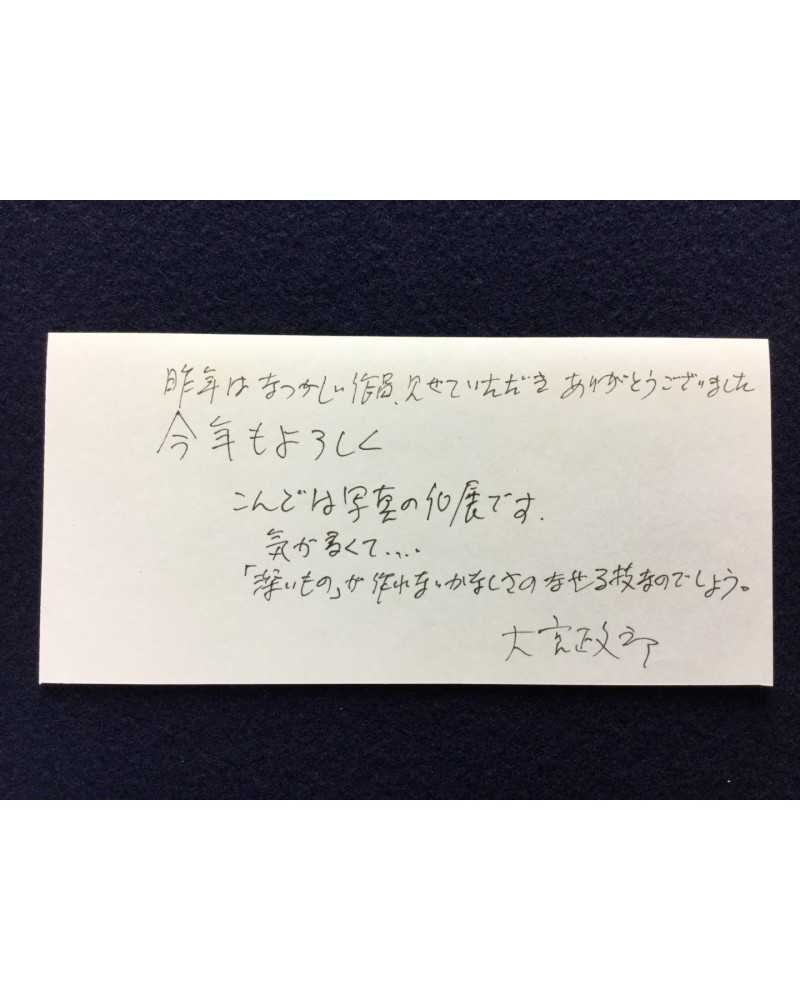 昨年はなつかしい作品、見せていただき ありがとうございました
今年もよろしく
こんどは写真の個展です.
気が多くて....
「深いもの」が作れないかなしさのなせる技なのでしょう。
大宮政郎